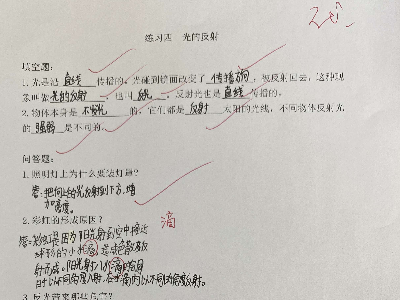 练习四 光的反射
填空题:
1. 光是沿 直线 传播的。光碰到镜面改变了 传播方向,被反射回去,这种现
象叫做 光的反射,也叫 反光。反射光也是 直线 传播的。
2. 物体本身是 不发光 的。它们都是 反射 太阳的光线,不同物体反射光
的 强弱 是不同的。
问答题:
1. 照明灯上为什么要装灯罩?
答:把向上的光反射到下方,增
加亮度。
2. 彩虹的形成原因?
滴
答:彩虹是因为阳光射到空中接近
球形的小水 造成色散及反
射而成。阳光射入水
时以不同角度入射,在 以不同角度反射。
3. 反光带来哪些危害?